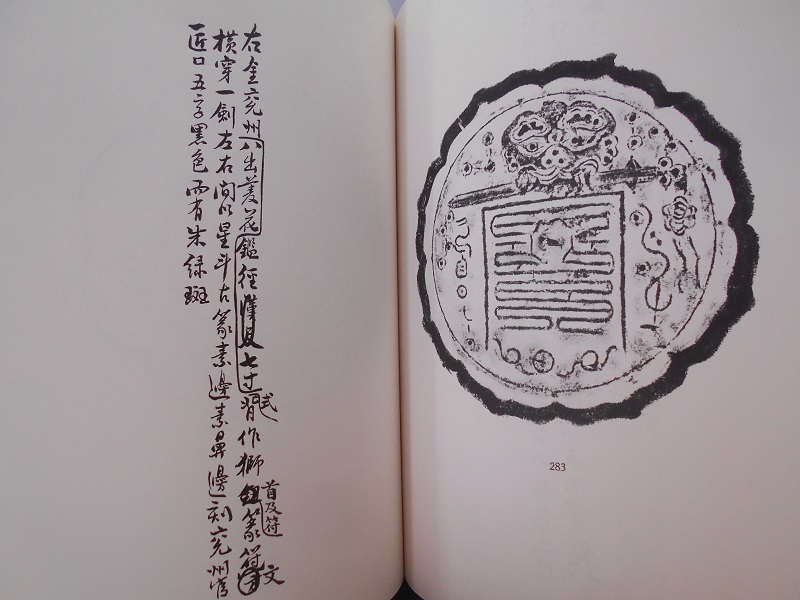 右金兗州八出菱花鑑徑漢尺七寸背作獅篆符
弍
首及符
文
橫穿一劍左右閒以星斗古篆素邊素鼻邊刻兗州官
匠口五字黑色而有朱緑斑
283